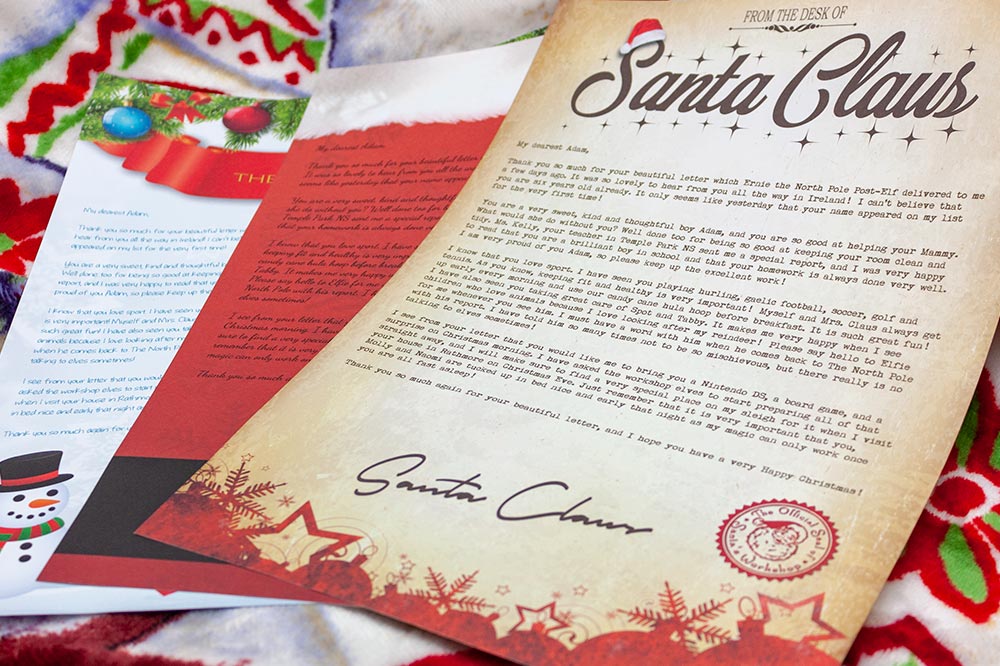 FROM THE DESK OF
Santa Claus
My dearest Adam,
Thank you so much for your beautiful letter which Ernie the North Pole Post-Elf delivered to me
a few days ago. It was so lovely to hear from you all the way in Ireland! I can't believe that
you are six years old already. It only seems like yesterday that your name appeared on my list
for the very first time!
You are a very sweet, kind and thoughtful boy Adam, and you are so good at helping your Mammy.
What would she do without you? Well done too for being so good at keeping your room clean and
tidy. Ms. Kelly, your teacher in Temple Park NS sent me a special report, and I was very happy
to read that you are a brilliant boy in school and that your homework is always done very well.
I am very proud of you Adam, so please keep up the excellent work!
I know that you love sport. I have seen you playing hurling, gaelic football, soccer, golf and
tennis. As you know, keeping fit and healthy is very important! Myself and Mrs. Claus always get
up early every morning and use our candy cane hula hoop before breakfast. It is such great fun!
I have also seen you taking great care of Spot and Tabby. It makes me very happy when I see
children who love animals because I love looking after my reindeer! Please say hello to Elfie
for me whenever you see him. I must have a word with him when he comes back to The North Pole
with his report. I have told him so many times not to be so mischievous, but there really is no
talking to elves sometimes!
I see from your letter that you would like me to bring you a Nintendo DS, a board game, and a
surprise on Christmas morning. I have asked the workshop elves to start preparing all of that
straight away, and I will make sure to find a very special place on my sleigh for it when I visit
your house in Rathmore on Christmas Eve. Just remember that it is very important that you,
Molly and Naomi are tucked up in bed nice and early that night as my magic can only work once
you are all fast asleep!
Thank you so much again for your beautiful letter, and I hope you have a very Happy Christmas!
Santa Claus
The Official Seal of
Santa's Workshop
My dearest Adam,
Thank you so much for your beautiful letter
It was so lovely to hear from you all the
seems like yesterday that your name appeared
You are a very sweet, kind and thoughtful
she do without you? Well done too for
Temple Park NS sent me a special
that your homework is always done
I know that you love sport. I have
keeping fit and healthy is very
candy cane hula hoop before
Tabby. It makes me very happy
Please say hello to Elfie for me
North Pole with his report. I
elves sometimes!
I see from your letter that
Christmas morning. I have
sure to find a very special
remember that it is very
magic can only work
Thank you so much
THE
My dearest Adam,
Thank you so much for your beautiful letter
hear from you all the way in Ireland! I can't
appeared on my list for the very first time!
You are a very sweet, kind and thoughtful
Well done too for being so good at keeping
report, and I was very happy to read that
proud of you Adam, so please keep up the
I know that you love sport. I have seen
is very important! Myself and Mrs. Claus
such great fun! I have also seen you
animals because I love looking after
when he comes back to The North
talking to elves sometimes!
I see from your letter that you would
asked the workshop elves to start
when I visit your house in Rathmore
in bed nice and early that night
Thank you so much again for